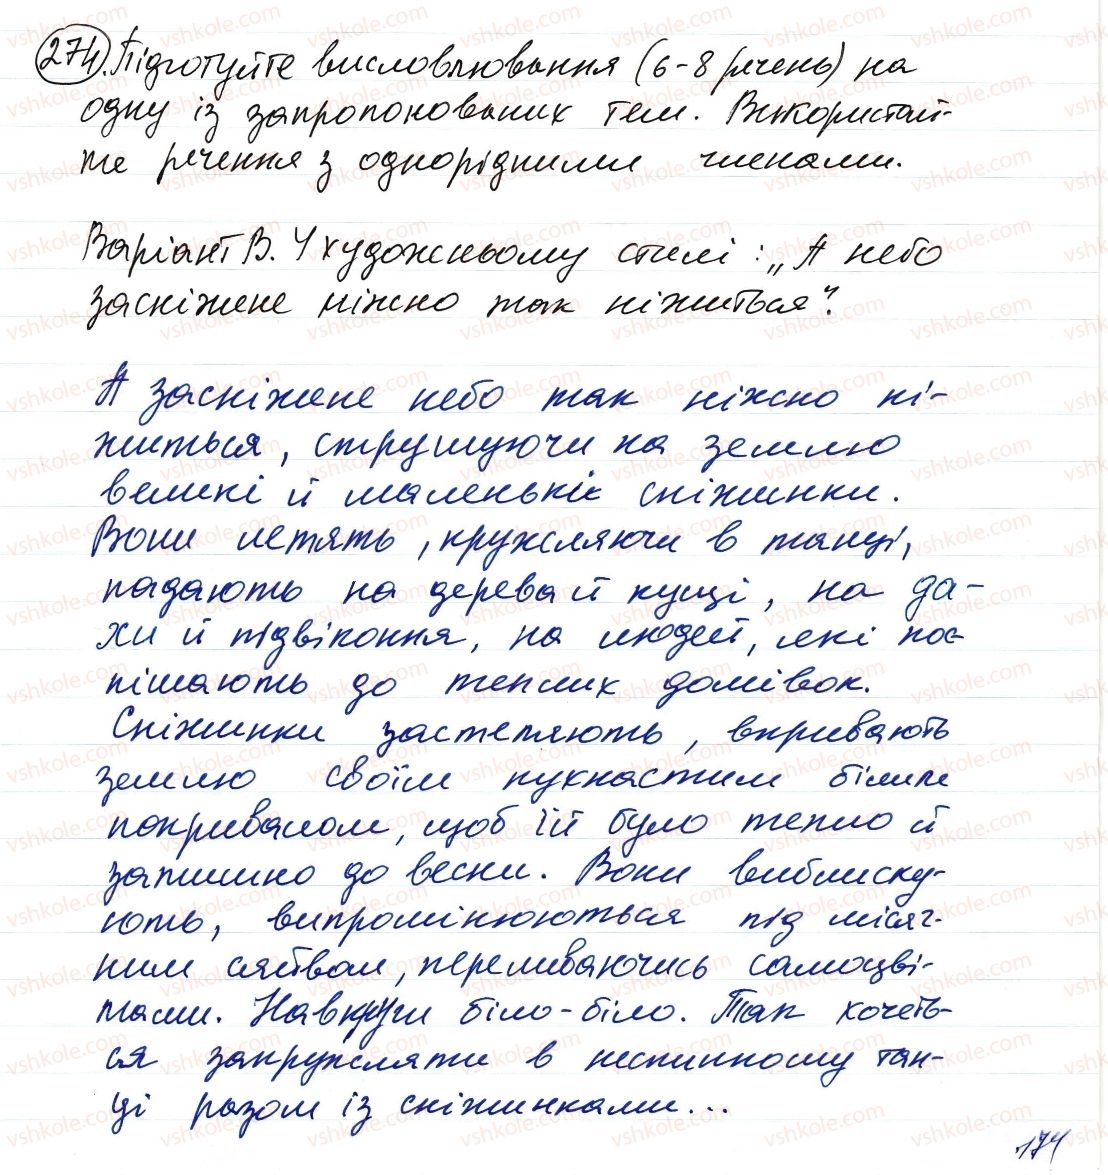 274. Підготуйте висловлювання (6-8 речень) на
одну із запропонованих тем. Використай-
те речення з однорідними членами.
Варіант В. У художньому стилі: „А небо
засніжене ніжно так ніжиться".
А засніжене небо так ніжно ні-
житься, струшуючи на землю
великі й маленькік сніжинки.
Вони летять, кружляючи в танці,
падають на дерева й кущі, на да-
хи й підвіконня, на людей, які пос-
пішають до теплих домівок.
Сніжинки застеляють, вкривають
землю своїм пухнастим білим
покривалом, щоб їй було тепло й
затишно до весни. Вони виблиску-
ють, випромінюються під місяч-
ним сяйвом, переливаючись самоцві-
тами. Навкруги біло-біло. Так хочеть-
ся закружляти в неспинному тан-
ці разом із сніжинками...
174